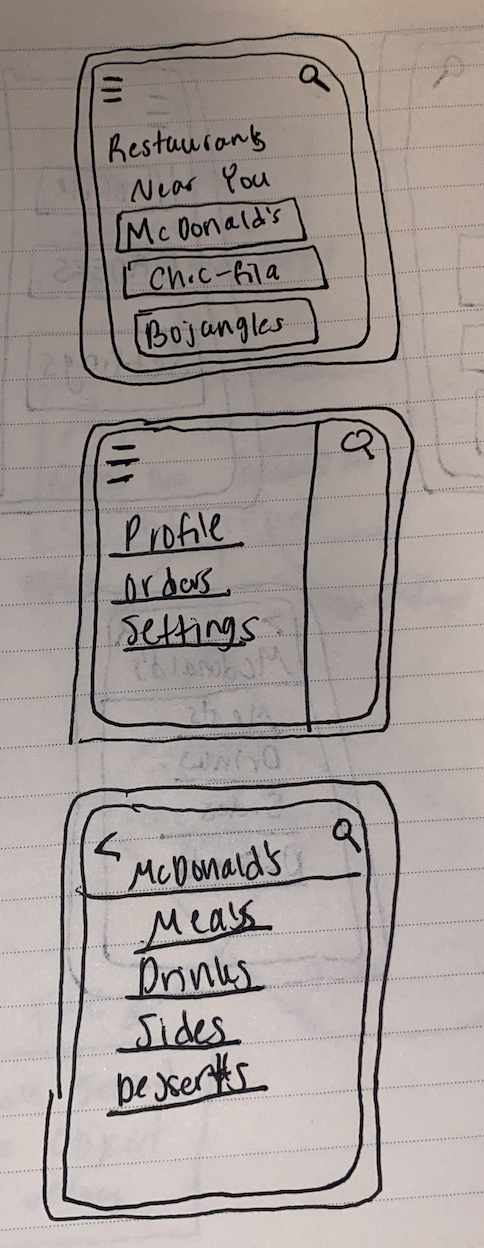 Restaurants
Near You
McDonald's
Chic-fila
Bojangles
Profile
Orders
Settings
McDonald's
Meals
Drinks
Sides
Desserts